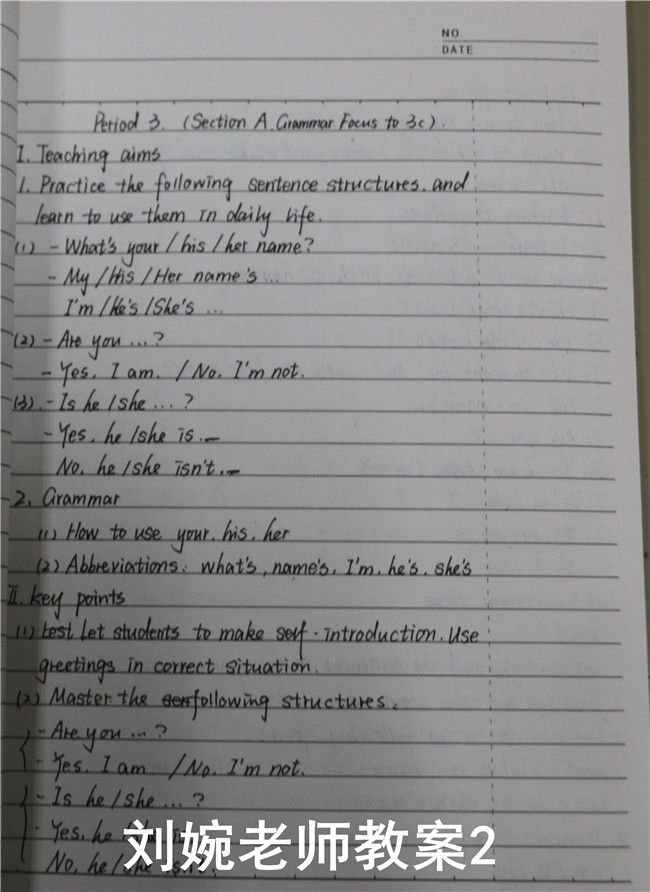 NO.
DATE
Period 3. (Section A Grammar Focus to 3c).
I. Teaching aims
1. Practice the following sentence structures. and
learn to use them in daily life.
(1) - What's your / his / her name?
- My / His / Her name's ...
I'm / He's / She's ...
(2) - Are you ...?
- Yes. I am. / No. I'm not.
(3). - Is he / she ...?
- Yes. he / she is.
No. he / she isn't.
2. Grammar
(1) How to use your. his. her
(2) Abbreviations: what's, name's, I'm. he's. she's
II. key points
(1) Let students to make self-introduction. Use
greetings in correct situation.
(2) Master the following structures.
- Are you ...?
- Yes. I am / No. I'm not.
- Is he / she ...?
- Yes. he
No. he /
刘婉老师教案2